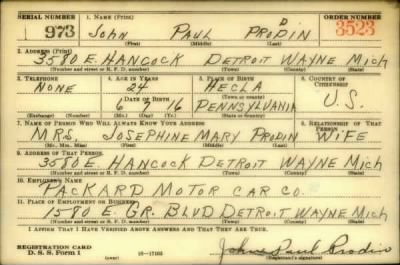 SERIAL NUMBER 1. NAME (Print) ORDER NUMBER
973 JOHN PAUL PRODIN 3523
(First) (Middle) (Last)
2. ADDRESS (Print)
3580 E. HANCOCK DETROIT WAYNE MICH
(Number and street or R. F. D. number) (Town) (County) (State)
3. TELEPHONE 4. AGE IN YEARS 5. PLACE OF BIRTH 6. COUNTRY OF CITIZENSHIP
NONE 24 HECLA
DATE OF BIRTH (Town or county) U.S.
6 6 16 PENNSYLVANIA
(Exchange) (Number) (Mo.) (Day) (Yr.) (State or country)
7. NAME OF PERSON WHO WILL ALWAYS KNOW YOUR ADDRESS 8. RELATIONSHIP OF THAT PERSON
MRS. JOSEPHINE MARY PRODIN WIFE
(Mr., Mrs., Miss) (First) (Middle) (Last)
9. ADDRESS OF THAT PERSON
3580 E. HANCOCK DETROIT WAYNE MICH
(Number and street or R. F. D. number) (Town) (County) (State)
10. EMPLOYER'S NAME
PACKARD MOTOR CAR CO.
11. PLACE OF EMPLOYMENT OR BUSINESS
1580 E. GR. BLVD DETROIT WAYNE MICH
(Number and street or R. F. D. number) (Town) (County) (State)
I AFFIRM THAT I HAVE VERIFIED ABOVE ANSWERS AND THAT THEY ARE TRUE.
REGISTRATION CARD
D. S. S. Form 1 16-17105 John Paul Prodin
(Registrant's signature)